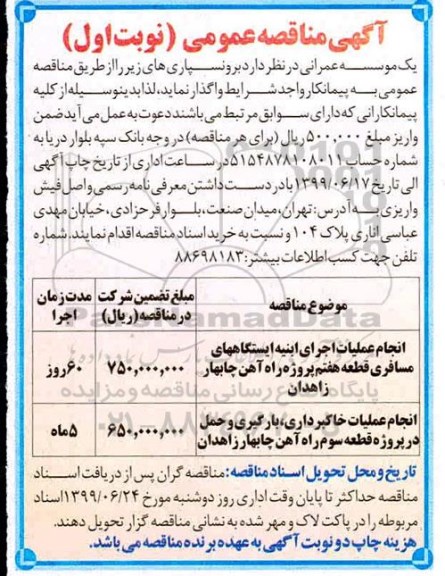 آگهی مناقصه عمومی (نوبت اول)
یک موسسه عمرانی در نظر دارد برونسپاری های زیر را از طریق مناقصه
عمومی به پیمانکار واجد شرایط واگذار نماید، لذا بدینوسیله از کلیه
پیمانکارانی که دارای سوابق مرتبط می باشند دعوت به عمل می آید ضمن
واریز مبلغ ۵۰۰،۰۰۰ ریال (برای هر مناقصه) در وجه بانک سپه بلوار دریا به
شماره حساب ۵۱۵۴۸۷۸۱۰۸۰۱۱ در ساعت اداری از تاریخ چاپ آگهی
الی تاریخ ۱۳۹۹/۰۶/۱۷ با در دست داشتن معرفی نامه رسمی و اصل فیش
واریزی به آدرس: تهران، میدان صنعت، بلوار فرحزادی، خیابان مهدی
عباسی اناری پلاک ۱۰۴ و نسبت به خرید اسناد مناقصه اقدام نمایند. شماره
تلفن جهت کسب اطلاعات بیشتر: ۸۸۶۹۸۱۸۳
موضوع مناقصه
مبلغ تضمین شرکت
در مناقصه (ریال)
مدت زمان
اجرا
انجام عملیات اجرای ابنیه ایستگاههای
مسافری قطعه هفتم پروژه راه آهن چابهار
زاهدان
۷۵۰,۰۰۰,۰۰۰
۶۰ روز
انجام عملیات خاکبرداری، بارگیری و حمل
در پروژه قطعه سوم راه آهن چابهار زاهدان
۶۵۰,۰۰۰,۰۰۰
۵ ماه
تاریخ و محل تحویل اسناد مناقصه: مناقصه گران پس از دریافت اسناد
مناقصه حداکثر تا پایان وقت اداری روز دوشنبه مورخ ۱۳۹۹/۰۶/۲۴ اسناد
مربوطه را در پاکت لاک و مهر شده به نشانی مناقصه گزار تحویل دهند.
هزینه چاپ دو نوبت آگهی به عهده برنده مناقصه می باشد.